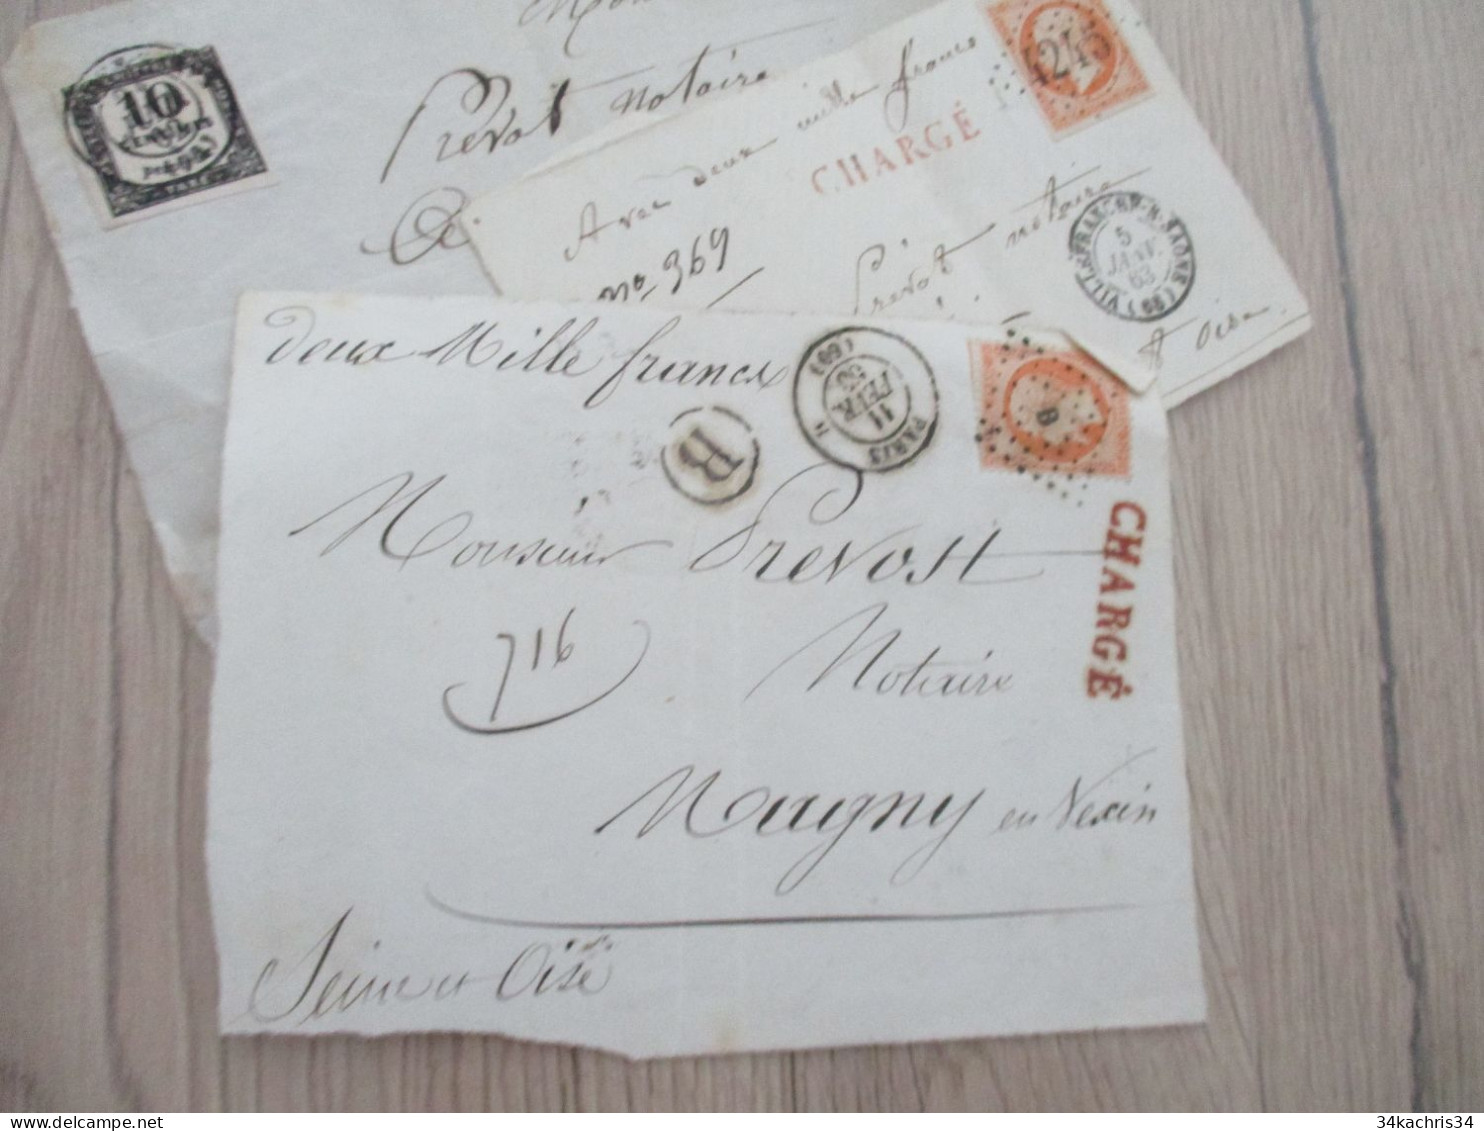 10
CENTIMES
Prevot notaire
4245
CHARGÉ
Avec deux mille francs
no 369
Prévôt notaire
VILLEFRANCHE-S-SAONE (68)
5
JANV.
63
et Oise
deux Mille francs
PARIS
11
FEVR.
(60)
R
B
CHARGÉ
Monsieur Prevost
716
Notaire
Magny en Vexin
Seine et Oise
34kachris34